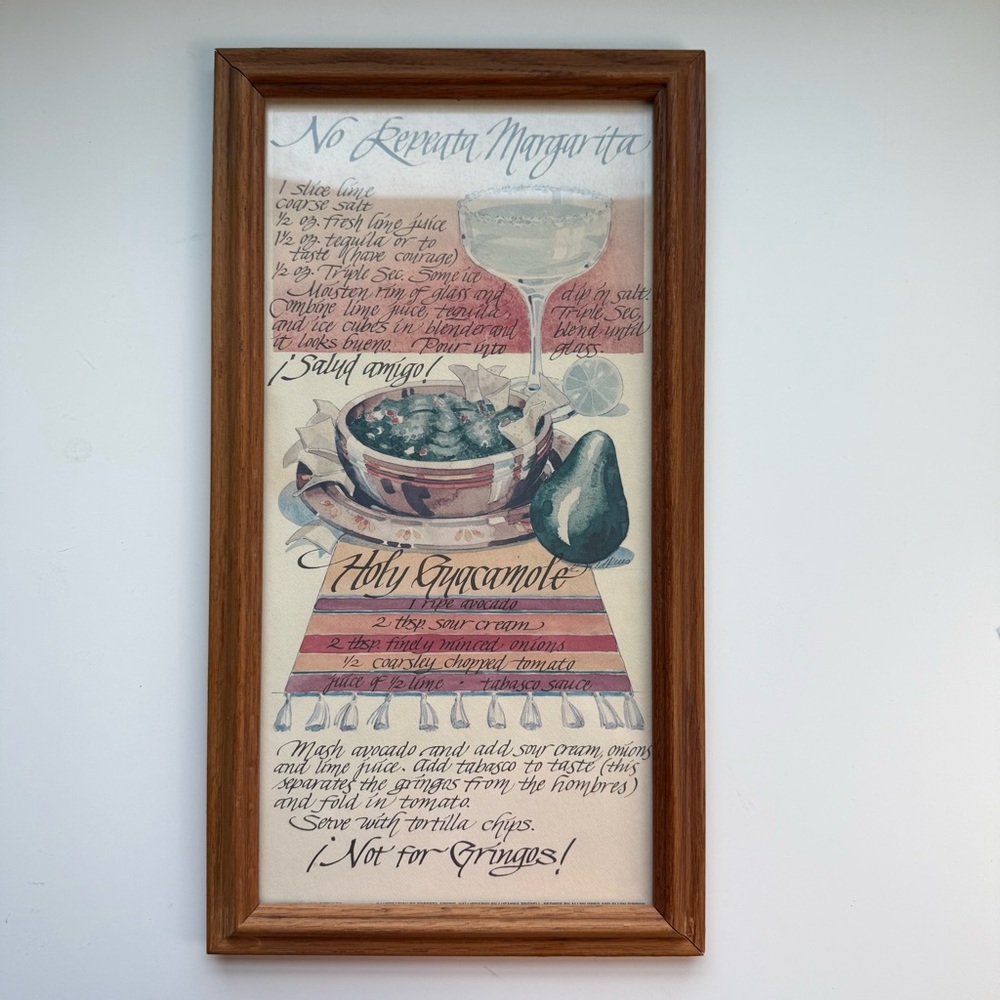 No Repeata Margarita
1 slice lime
coarse salt
½ oz. fresh lime juice
1½ oz. tequila or to
taste (have courage)
½ oz. Triple Sec. Some ice
Moisten rim of glass and dip in salt.
Combine lime juice, tequila Triple Sec,
and ice cubes in blender and blend until
it looks bueno. Pour into glass.
¡Salud amigo!
Holy Guacamole
1 ripe avocado
2 tbsp. sour cream
2 tbsp. finely minced onions
½ coarsley chopped tomato
juice of ½ lime · tabasco sauce
Mash avocado and add sour cream, onions
and lime juice. Add tabasco to taste (this
separates the gringos from the hombres)
and fold in tomato.
Serve with tortilla chips.
¡Not for Gringos!